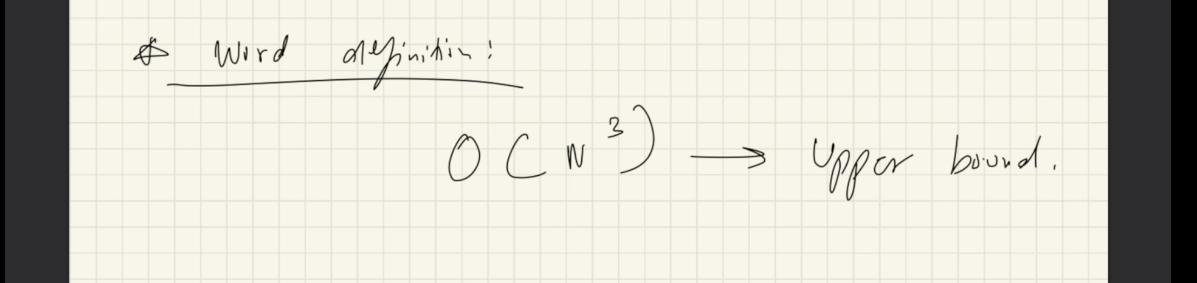 ☆ Word definition:
O(N³) → Upper bound.